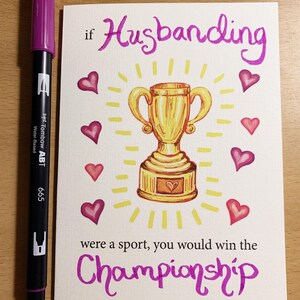 if Husbanding
were a sport, you would win the
Championship
Tombow ABT
665